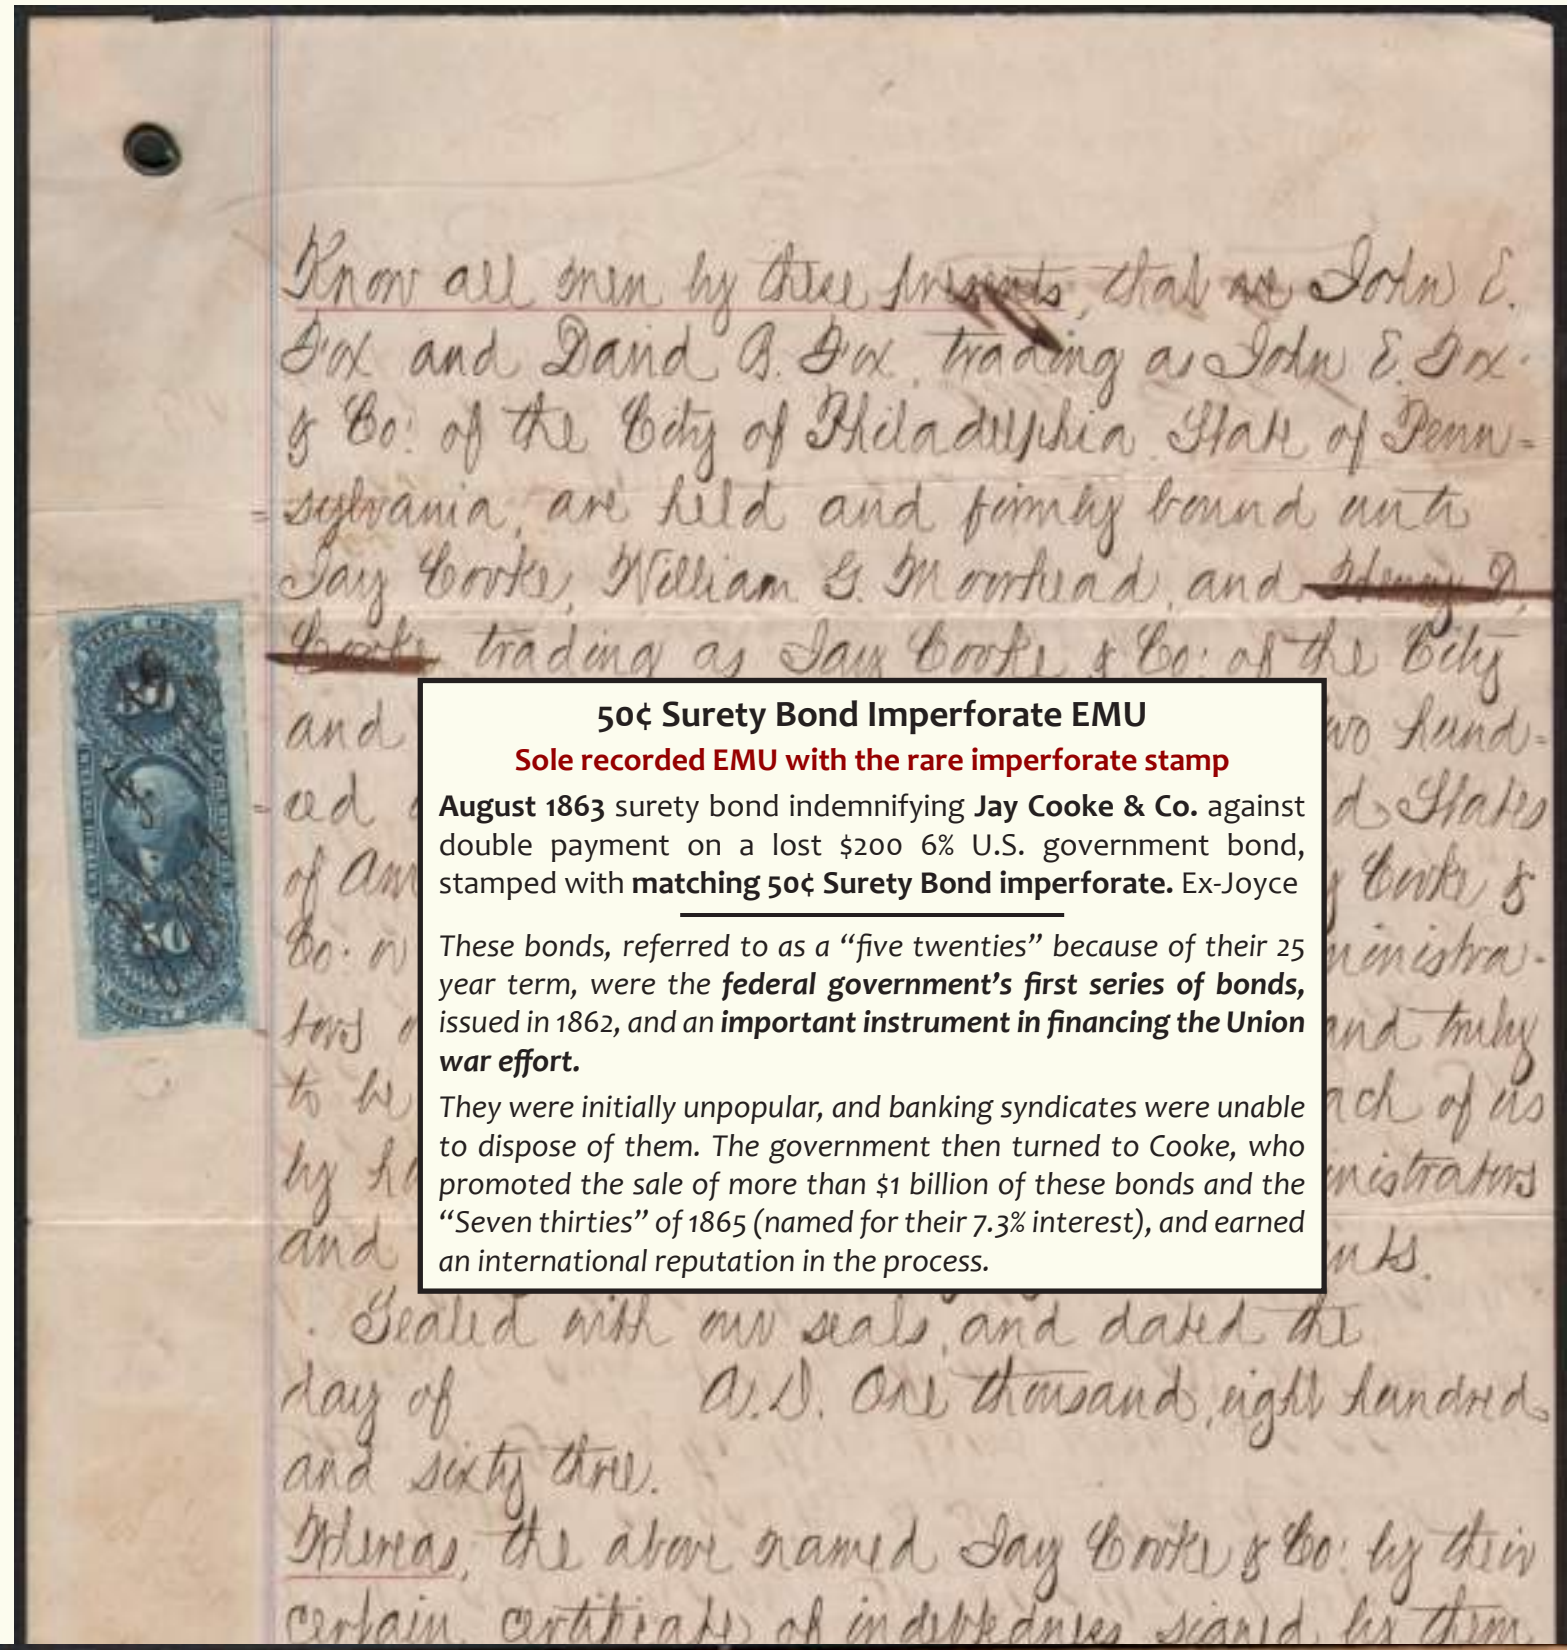 Know all men by these presents, that we John E.
Fox and David B. Fox, trading as John E. Fox
& Co: of the City of Philadelphia State of Penn=
sylvania, are held and firmly bound unto
Jay Cooke, William G. Moorhead, and Henry D.
Cooke trading as Jay Cooke & Co: of the City
and two hund=
ed d States
of Am y Cooke &
Co. ministra-
tors and truly
to be ach of us
by he inistrators
and nts.
Sealed with our seals, and dated the
day of A.D. One thousand, eight hundred
and sixty three.
Whereas, the above named Jay Cooke & Co: by their
certain certificate of indebtedness signed by them
50
50
SURETY BOND
50¢ Surety Bond Imperforate EMU
Sole recorded EMU with the rare imperforate stamp
August 1863 surety bond indemnifying Jay Cooke & Co. against
double payment on a lost $200 6% U.S. government bond,
stamped with matching 50¢ Surety Bond imperforate. Ex-Joyce
These bonds, referred to as a “five twenties” because of their 25
year term, were the federal government’s first series of bonds,
issued in 1862, and an important instrument in financing the Union
war effort.
They were initially unpopular, and banking syndicates were unable
to dispose of them. The government then turned to Cooke, who
promoted the sale of more than $1 billion of these bonds and the
“Seven thirties” of 1865 (named for their 7.3% interest), and earned
an international reputation in the process.